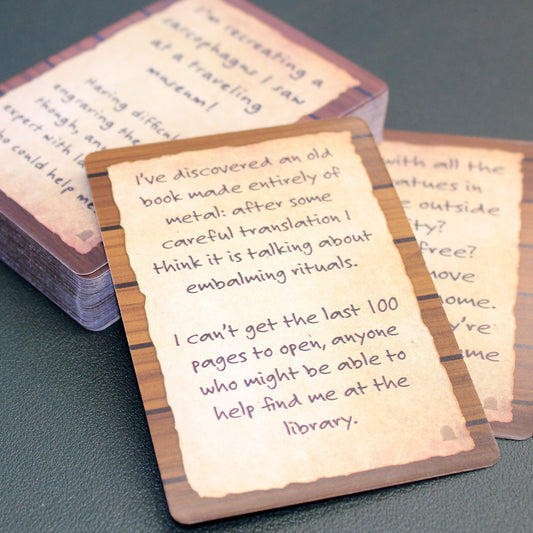 I'm recreating a
sarcophagus I saw
at a traveling
museum!
Having difficul
engraving the
though, any
expert with la
ho could help me
I've discovered an old
book made entirely of
metal: after some
careful translation I
think it is talking about
embalming rituals.
I can't get the last 100
pages to open, anyone
who might be able to
help find me at the
library.
with all the
tatues in
e outside
ity?
free?
move
ome.
y're
me